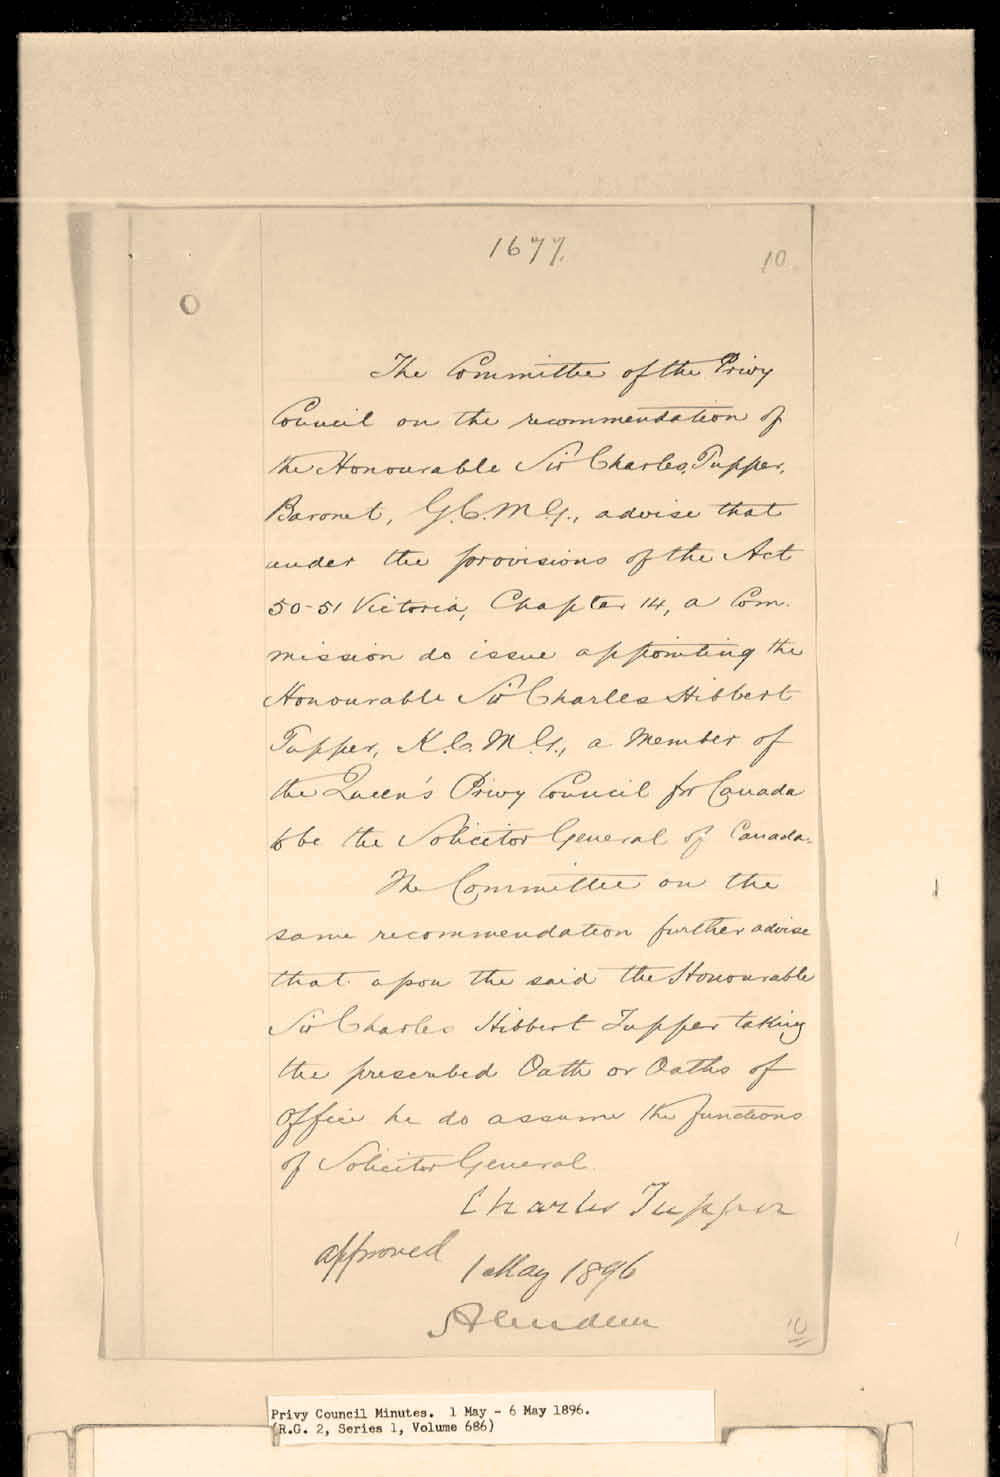 1677.
10
The Committee of the Privy
Council on the recommendation of
the Honourable Sir Charles Tupper,
Baronet, G.C.M.G., advise that
under the provisions of the Act
50-51 Victoria, Chapter 14, a Com-
mission do issue appointing the
Honourable Sir Charles Hibbert
Tupper, K.C.M.G., a Member of
the Queen's Privy Council for Canada
to be the Solicitor General of Canada.
The Committee on the
same recommendation further advise
that upon the said the Honourable
Sir Charles Hibbert Tupper taking
the prescribed Oath or Oaths of
Office he do assume the functions
of Solicitor General.
Charles Tupper
approved
1 May 1896
Aberdeen
10
Privy Council Minutes. 1 May - 6 May 1896.
(R.G. 2, Series 1, Volume 686)